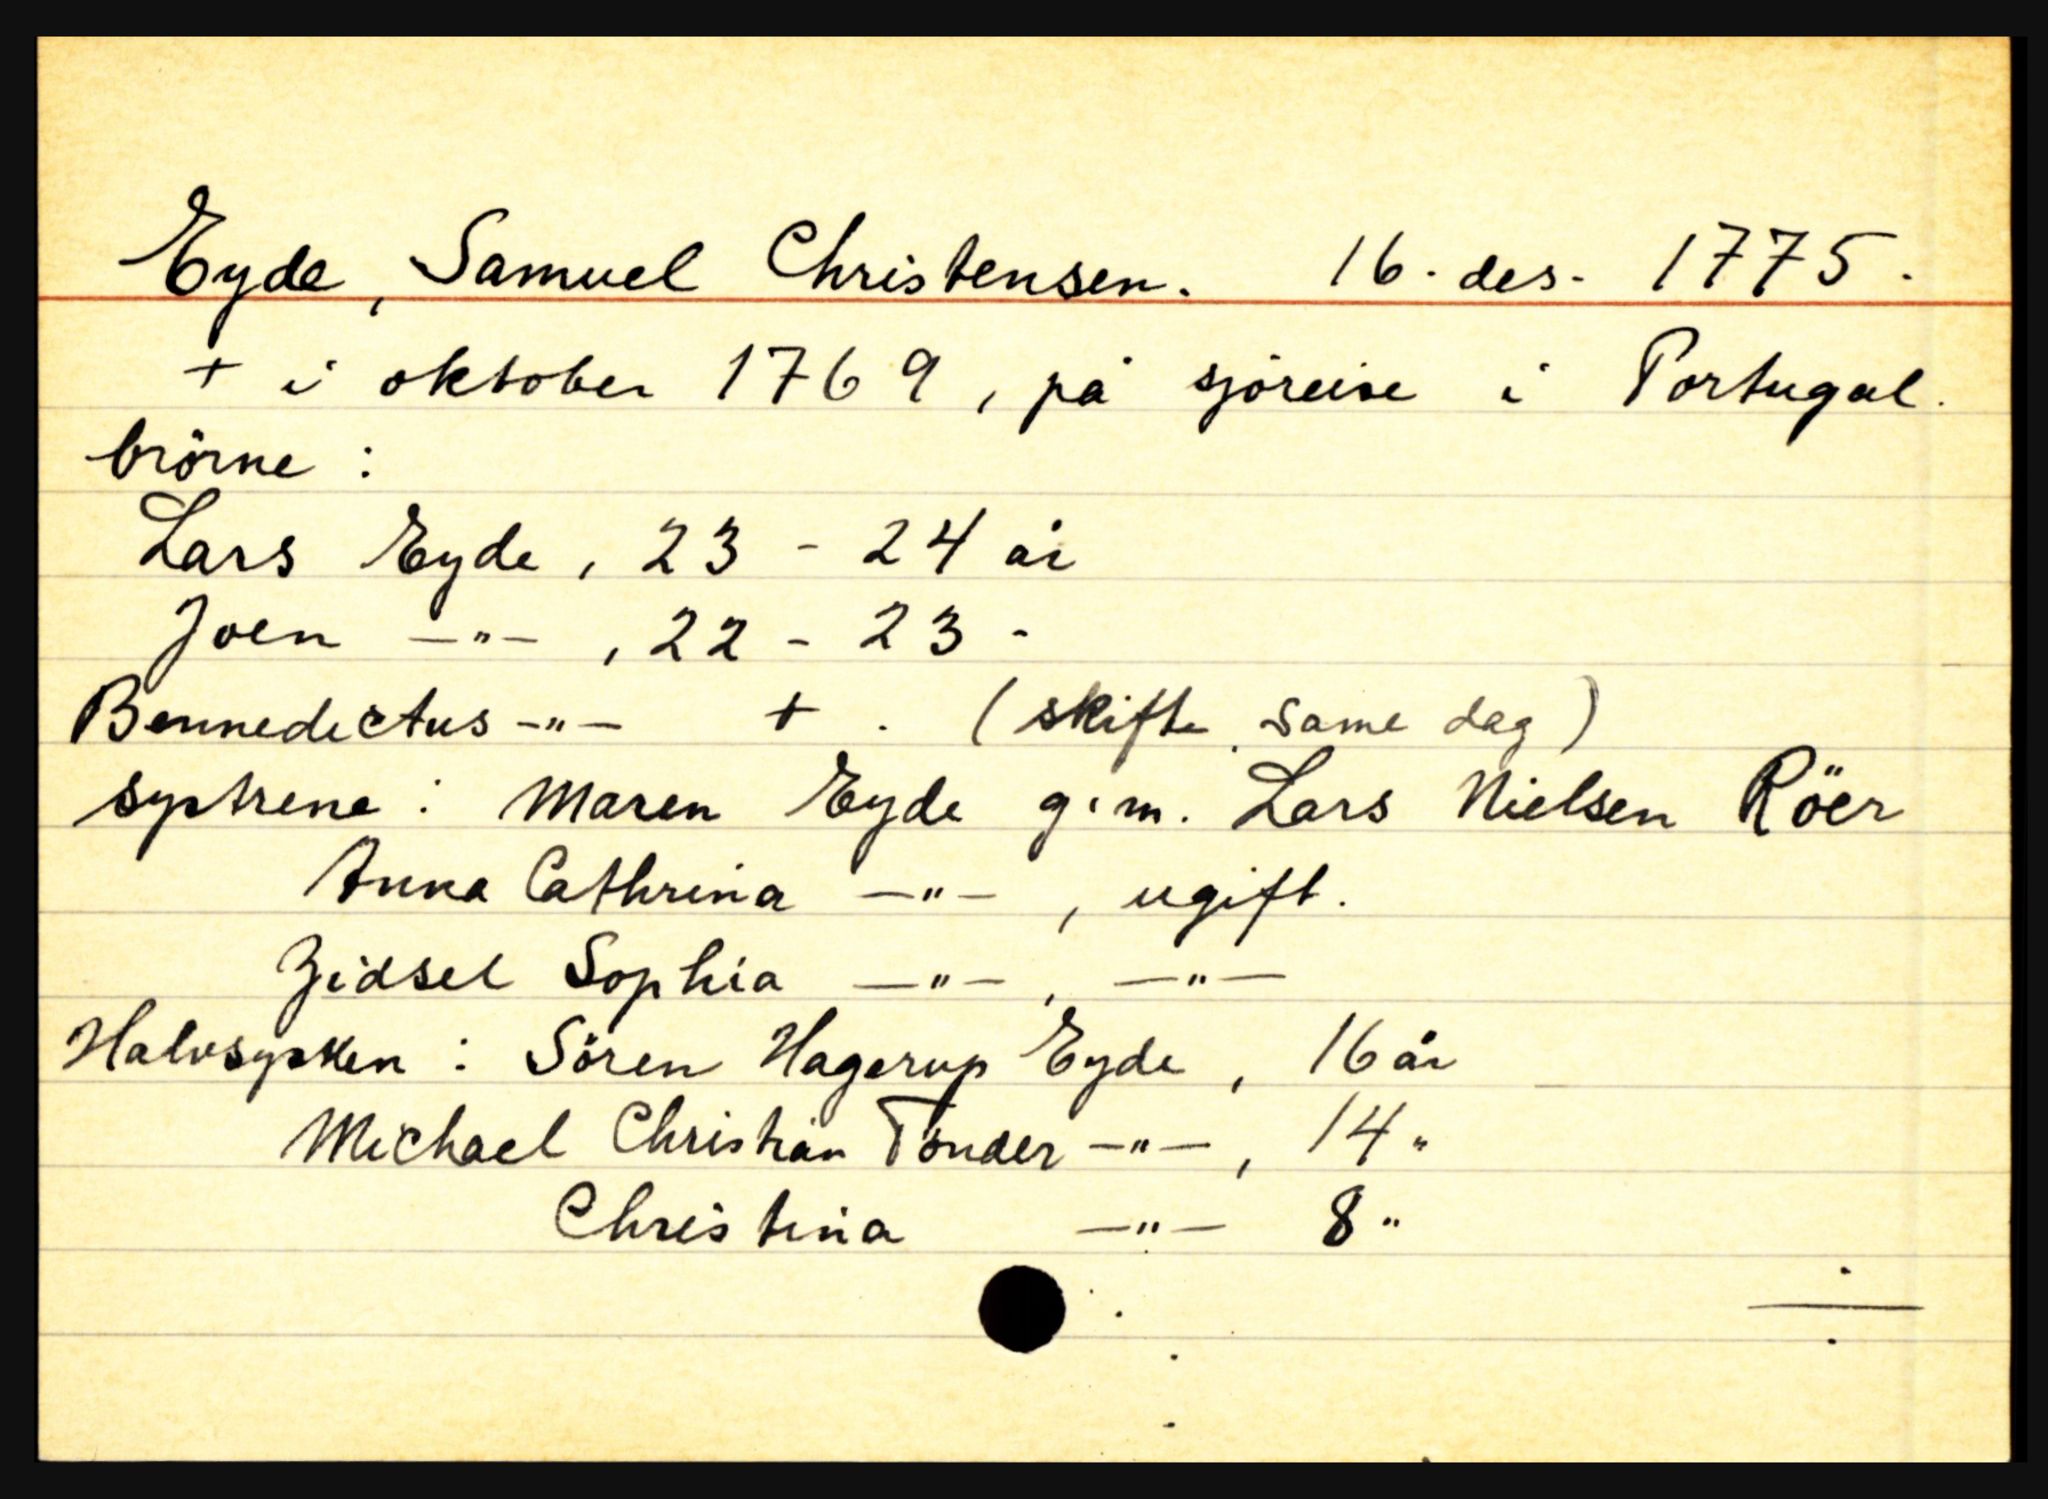 Eyde, Samuel Christensen. 16. des. 1775.
+ i oktober 1769, på sjöreise i Portugal.
brörne :
Lars Eyde, 23 - 24 år
Joen —"— , 22 - 23 -
Bennedictus -"— + . (skifte same dag)
systrene : Maren Eyde g.m. Lars Nielsen Röer
Anna Cathrina —"— , ugift.
Zidsel Sophia —"— , —"—
Halvsysken : Sören Hagerup Eyde, 16 år
Michael Christian Tönder —"—, 14 "
Christina —"— 8 "